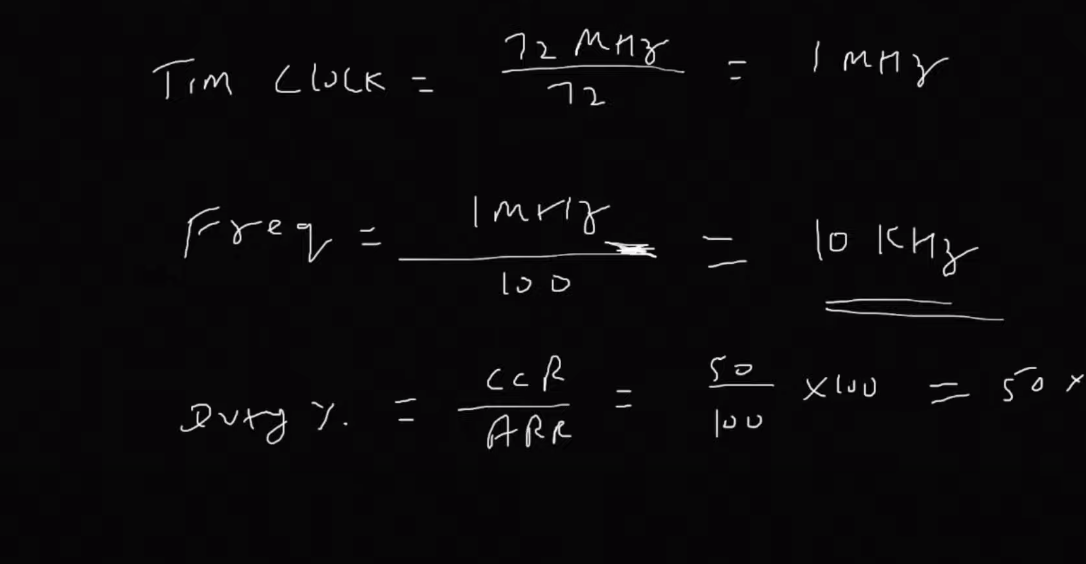 TIM CLOCK = 72 MHz / 72 = 1 MHz
Freq = 1 MHz / 100 = 10 KHz
Duty % = CCR / ARR = 50 / 100 × 100 = 50